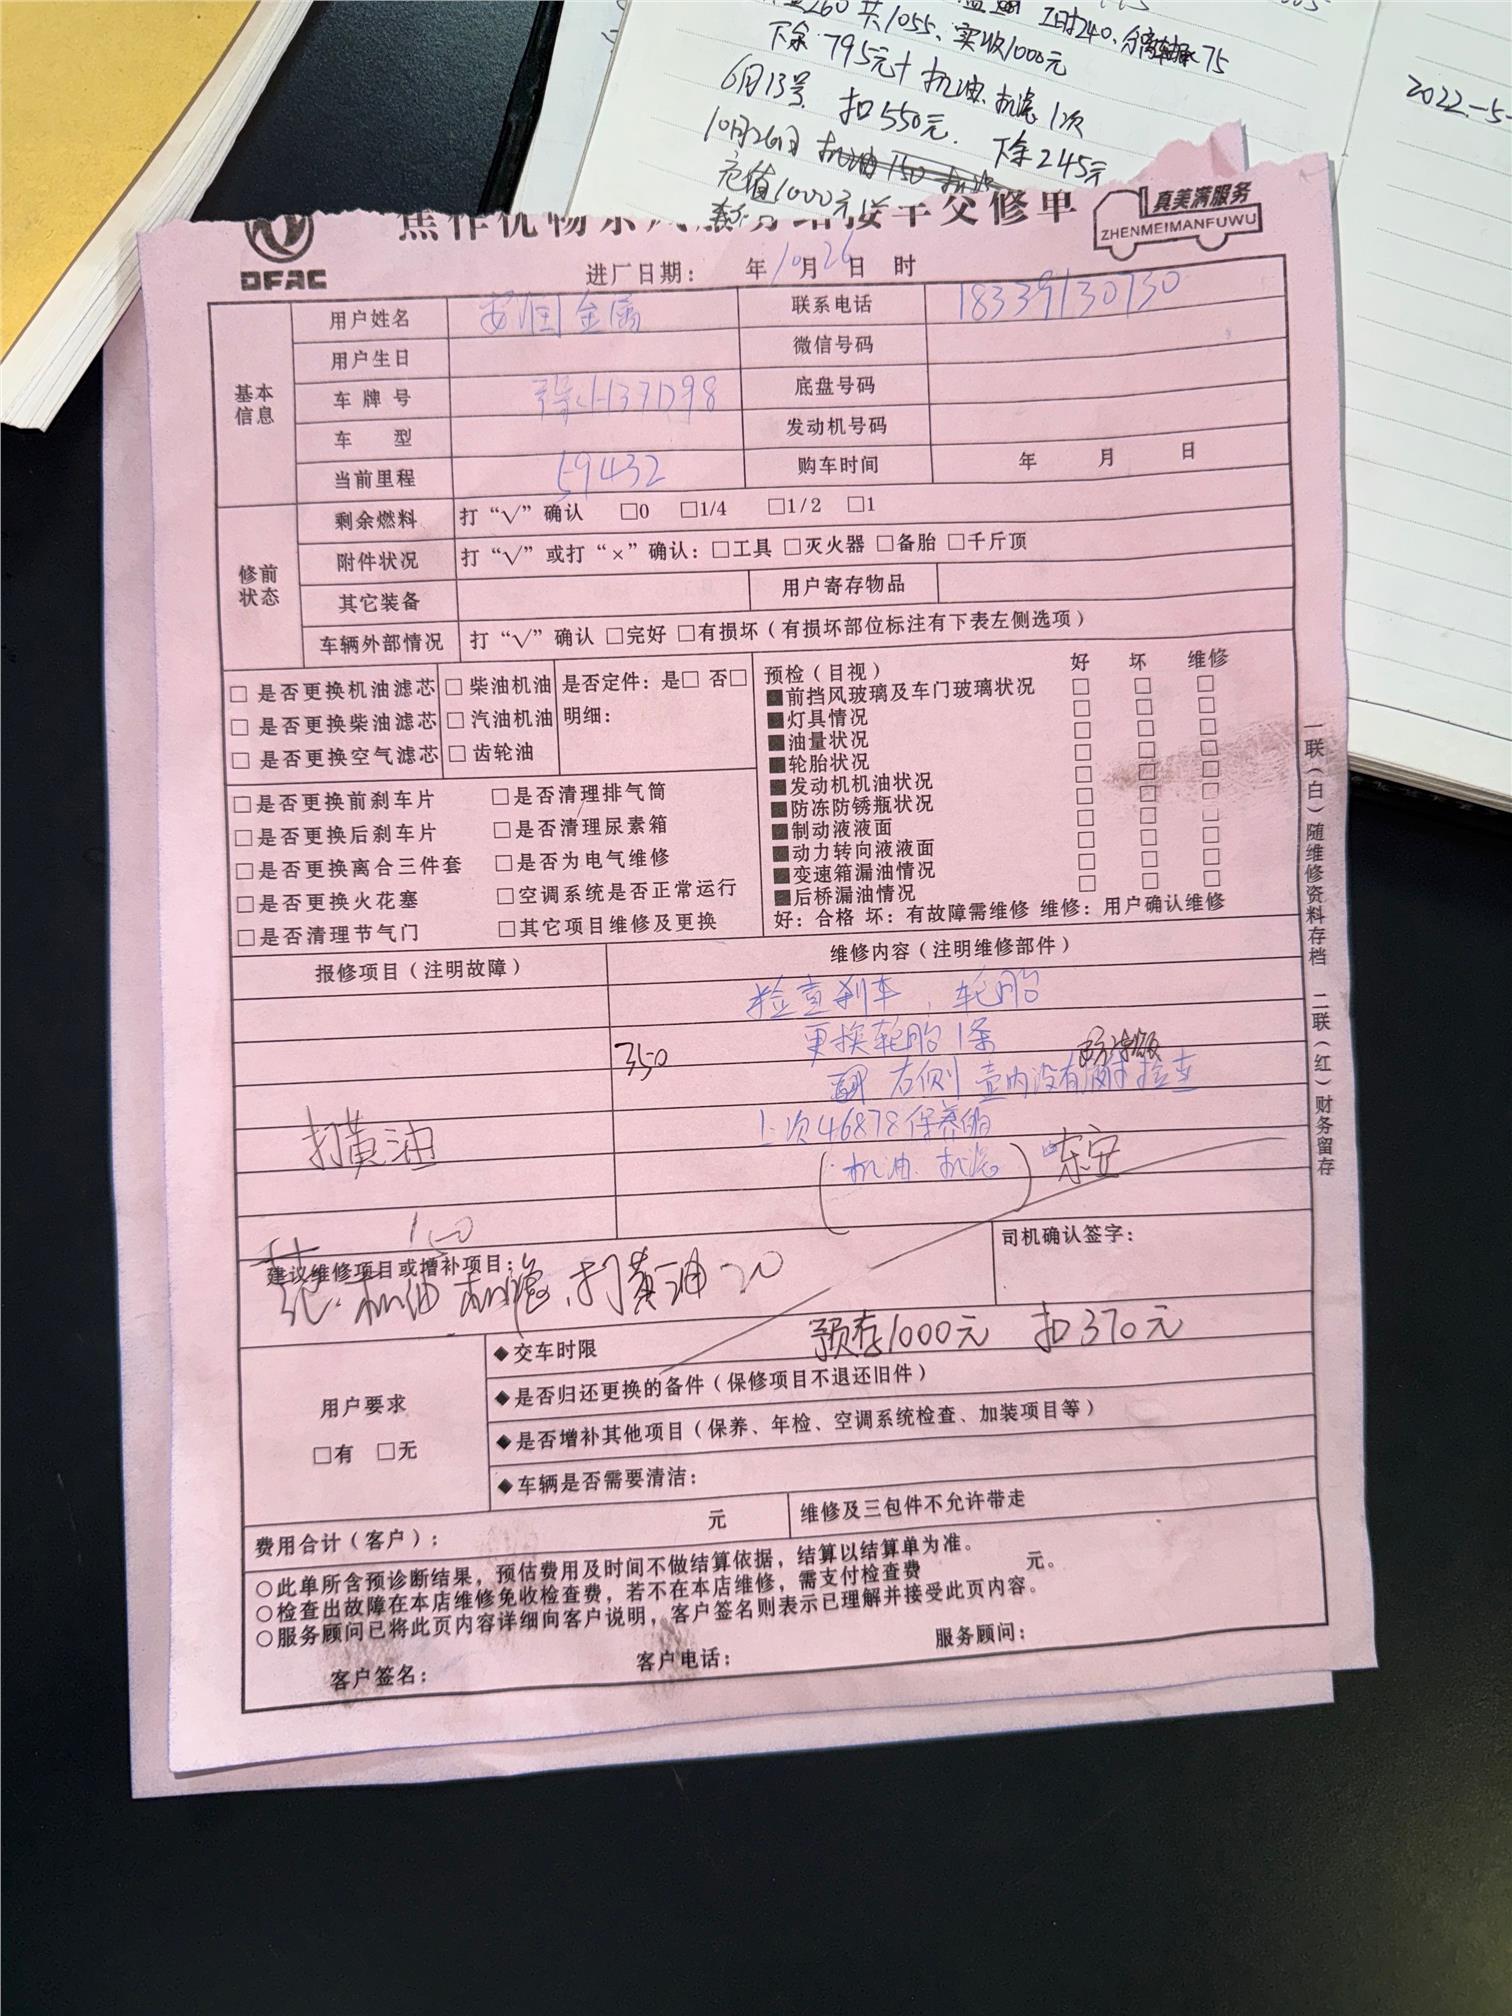 260 共1055、实收1000元
工时240、分离轴承75
下余795元+机油、机滤1次
6月13号 扣550元. 下余245元
10月26日 机油150
充值1000元
2022-5-
DFAC
接车交修单
真美满服务
ZHENMEIMANFUWU
进厂日期: 年10月26日 时
基本信息
用户姓名 金属 联系电话 18339130730
用户生日 微信号码
车牌号 底盘号码
车型 发动机号码
当前里程 59432 购车时间 年 月 日
修前状态
剩余燃料 打“√”确认 □0 □1/4 □1/2 □1
附件状况 打“√”或打“×”确认:□工具 □灭火器 □备胎 □千斤顶
其它装备 用户寄存物品
车辆外部情况 打“√”确认 □完好 □有损坏(有损坏部位标注有下表左侧选项)
□ 是否更换机油滤芯 □ 柴油机油 是否定件:是□ 否□
□ 是否更换柴油滤芯 □ 汽油机油 明细:
□ 是否更换空气滤芯 □ 齿轮油
□是否更换前刹车片 □是否清理排气筒
□是否更换后刹车片 □是否清理尿素箱
□是否更换离合三件套 □是否为电气维修
□是否更换火花塞 □空调系统是否正常运行
□是否清理节气门 □其它项目维修及更换
预检(目视) 好 坏 维修
■前挡风玻璃及车门玻璃状况 □ □ □
■灯具情况 □ □ □
■油量状况 □ □ □
■轮胎状况 □ □ □
■发动机机油状况 □ □ □
■防冻防锈瓶状况 □ □ □
■制动液液面 □ □ □
■动力转向液液面 □ □ □
■变速箱漏油情况 □ □ □
■后桥漏油情况 □ □ □
好:合格 坏:有故障需维修 维修:用户确认维修
报修项目(注明故障) 维修内容(注明维修部件)
检查刹车,轮胎
350 更换轮胎1条
防冻液
右侧壶内没有 检查
上次46878保养的
打黄油 (机油、机滤)
150
建议维修项目或增补项目: 司机确认签字:
机油 机滤、打黄油20
用户要求
□有 □无
◆交车时限 预存1000元 扣370元
◆是否归还更换的备件(保修项目不退还旧件)
◆是否增补其他项目(保养、年检、空调系统检查、加装项目等)
◆车辆是否需要清洁:
费用合计(客户): 元 维修及三包件不允许带走
○此单所含预诊断结果,预估费用及时间不做结算依据,结算以结算单为准。
○检查出故障在本店维修免收检查费,若不在本店维修,需支付检查费 元。
○服务顾问已将此页内容详细向客户说明,客户签名则表示已理解并接受此页内容。
客户签名: 客户电话: 服务顾问:
一联(白)随维修资料存档 二联(红)财务留存